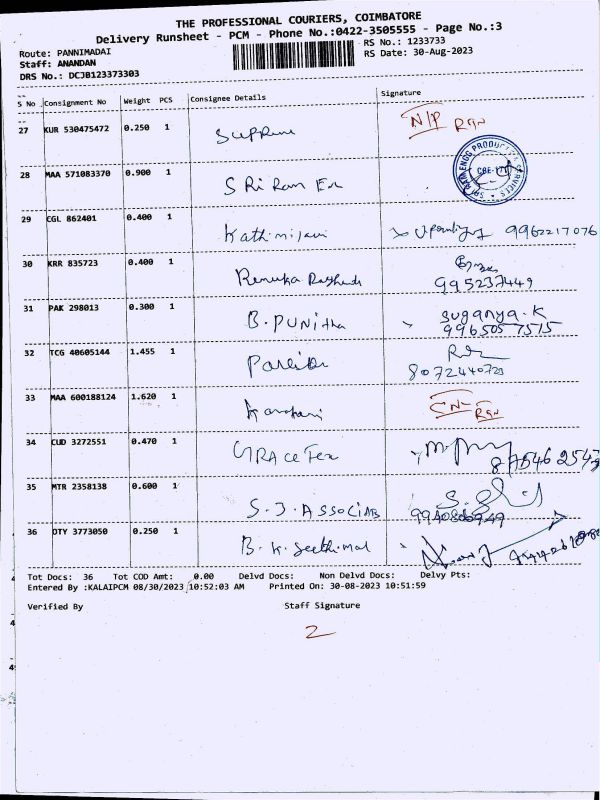 THE PROFESSIONAL COURIERS, COIMBATORE
Delivery Runsheet - PCM - Phone No.:0422-3505555 - Page No.:3
Route: PANNIMADAI
RS No.: 1233733
Staff: ANANDAN
RS Date: 30-Aug-2023
DRS No.: DCJB123373303
S No Consignment No Weight PCS Consignee Details Signature
27 KUR 530475472 0.250 1 Supreme N/P RGN
28 MAA 571083370 0.900 1 SRi Ram
CBE-
29 CGL 862401 0.400 1 9962217076
30 KRR 835723 0.400 1 Renuka
995237449
31 PAK 298013 0.300 1 B. PUNitha suganya.K
9965057515
32 TCG 40605144 1.455 1
8072440723
33 MAA 600188124 1.620 1 RGN
34 CUD 3272551 0.470 1 GRACe Tex
35 MTR 2358138 0.600 1 S.J. ASSOCiAB
36 DTY 3773050 0.250 1 B.K.
Tot Docs: 36 Tot COD Amt: 0.00 Delvd Docs: Non Delvd Docs: Delvy Pts:
Entered By :KALAIPCM 08/30/2023 10:52:03 AM Printed On: 30-08-2023 10:51:59
Verified By Staff Signature
2